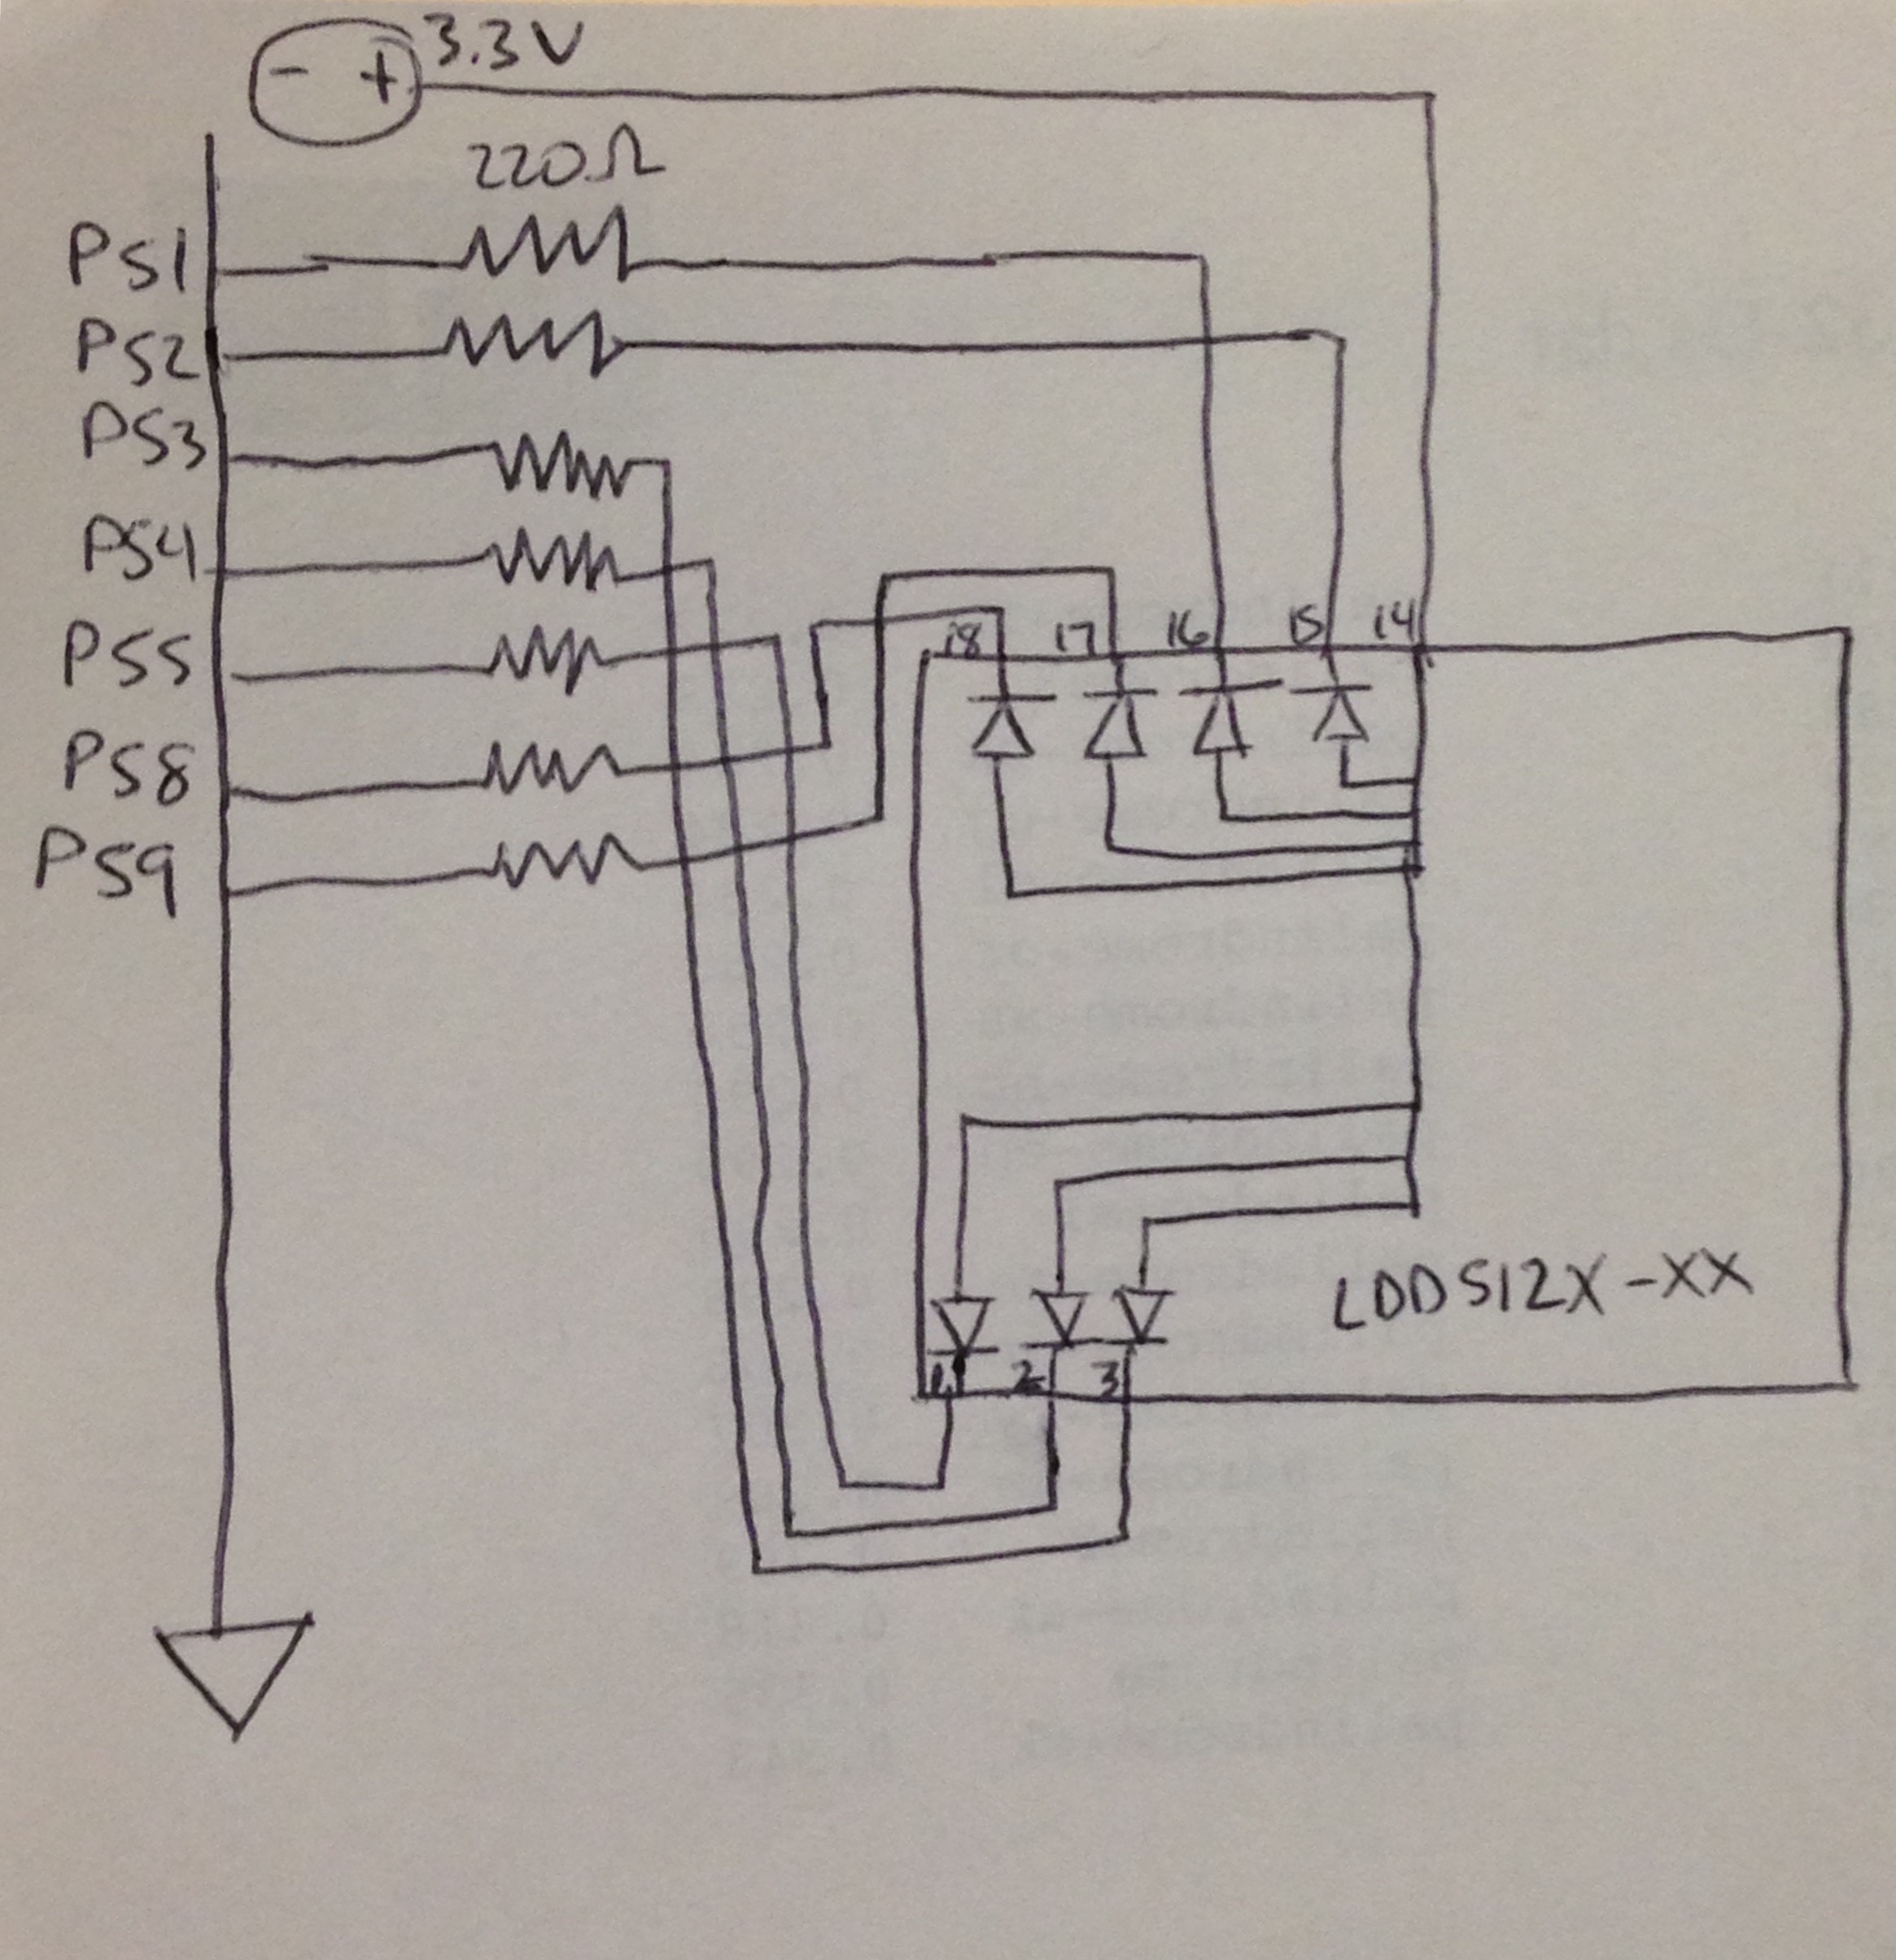 - + 3.3V
220Ω
PS1
PS2
PS3
PS4
PS5
PS8
PS9
18 17 16 15 14
LDDS12X-XX
1 2 3